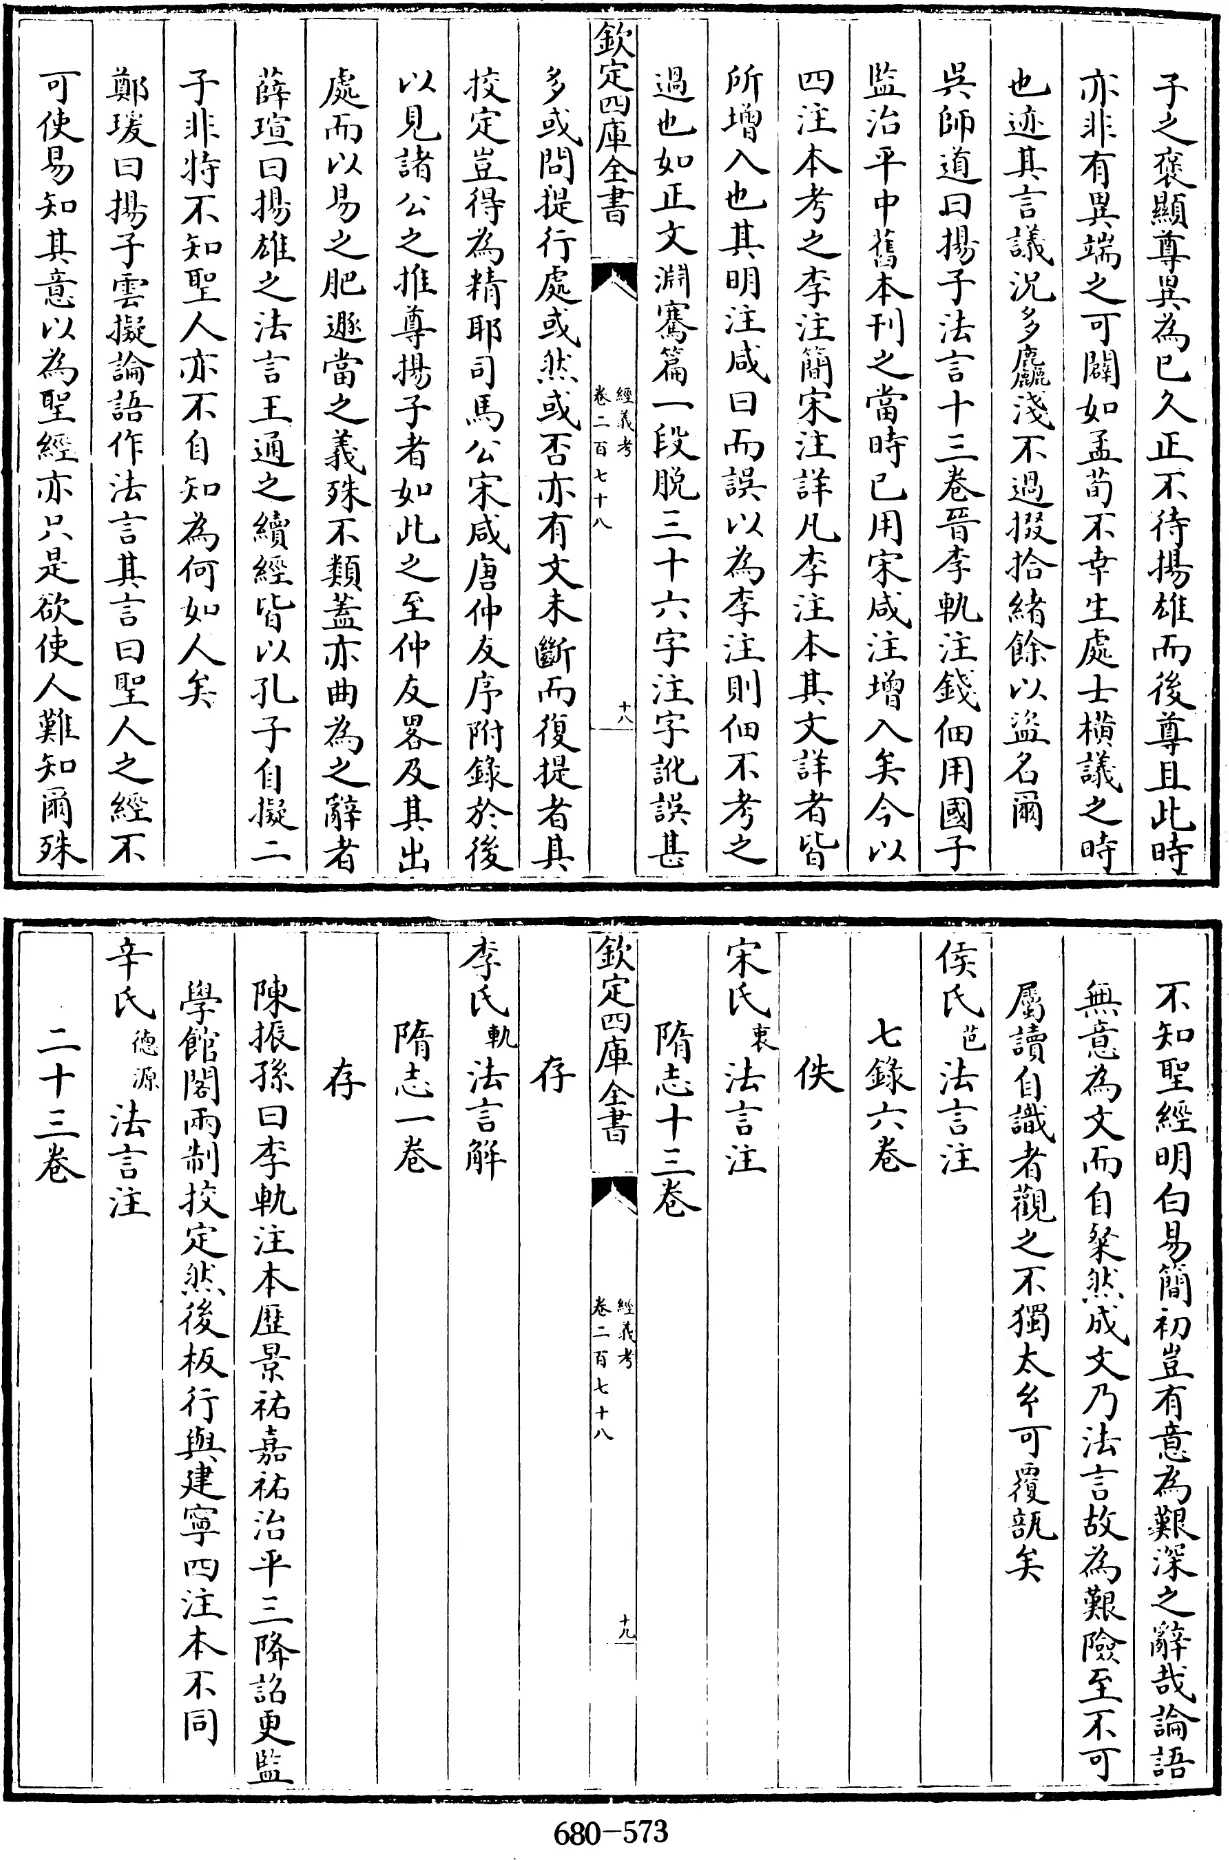 子之褒顯尊異為已久正不待揚雄而後尊且此時
亦非有異端之可闢如孟荀不幸生處士橫議之時
也迹其言議況多麤淺不過掇拾緒餘以盜名爾
吳師道曰揚子法言十三卷晉李軌注錢佃用國子
監治平中舊本刊之當時已用宋咸注增入矣今以
四注本考之李注簡宋注詳凡李注本其文詳者皆
所增入也其明注咸曰而誤以為李注則佃不考之
過也如正文淵騫篇一段脫三十六字注字訛誤甚
欽定四庫全書
經義考
卷二百七十八
十八
多或問提行處或然或否亦有文未斷而復提者其
挍定豈得為精耶司馬公宋咸唐仲友序附錄於後
以見諸公之推尊揚子者如此之至仲友畧及其出
處而以易之肥遯當之義殊不類蓋亦曲為之辭者
薛瑄曰揚雄之法言王通之續經皆以孔子自擬二
子非特不知聖人亦不自知為何如人矣
鄭瑗曰揚子雲擬論語作法言其言曰聖人之經不
可使易知其意以為聖經亦只是欲使人難知爾殊
不知聖經明白易簡初豈有意為艱深之辭哉論語
無意為文而自粲然成文乃法言故為艱險至不可
屬讀自識者觀之不獨太𤣥可覆瓿矣
侯氏芭法言注
七錄六卷
佚
宋氏衷法言注
隋志十三卷
欽定四庫全書
經義考
卷二百七十八
十九
存
李氏軌法言解
隋志一卷
存
陳振孫曰李軌注本歷景祐嘉祐治平三降詔更監
學館閣兩制挍定然後板行與建寧四注本不同
辛氏德源法言注
二十三卷
680-573